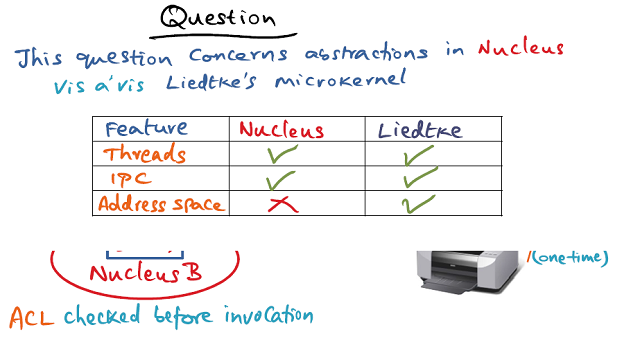 Question
This question concerns abstractions in Nucleus
Vis a'vis Liedtke's microkernel
Feature Nucleus Liedtke
Threads ✓ ✓
IPC ✓ ✓
Address space ✗ ✓
Nucleus B
/(one time)
ACL checked before invocation